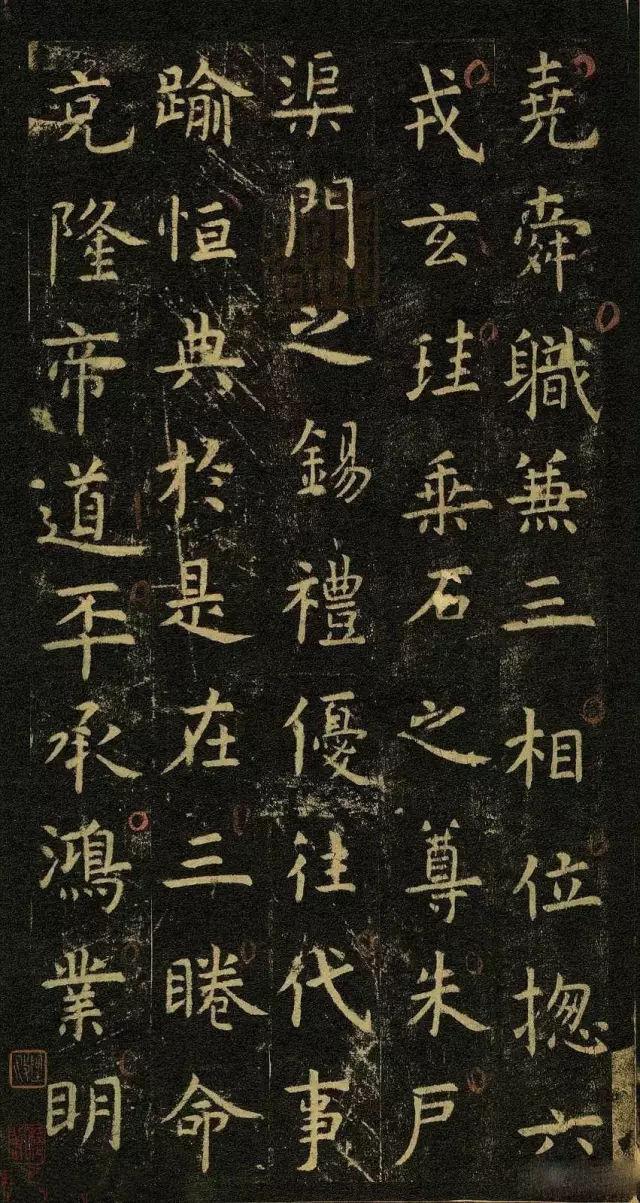 堯舜職兼三相位揔六
戎玄珪乘石之尊朱戶
渠門之錫禮優往代事
踰恒典於是在三睠命
兗隆帝道丕承鴻業明